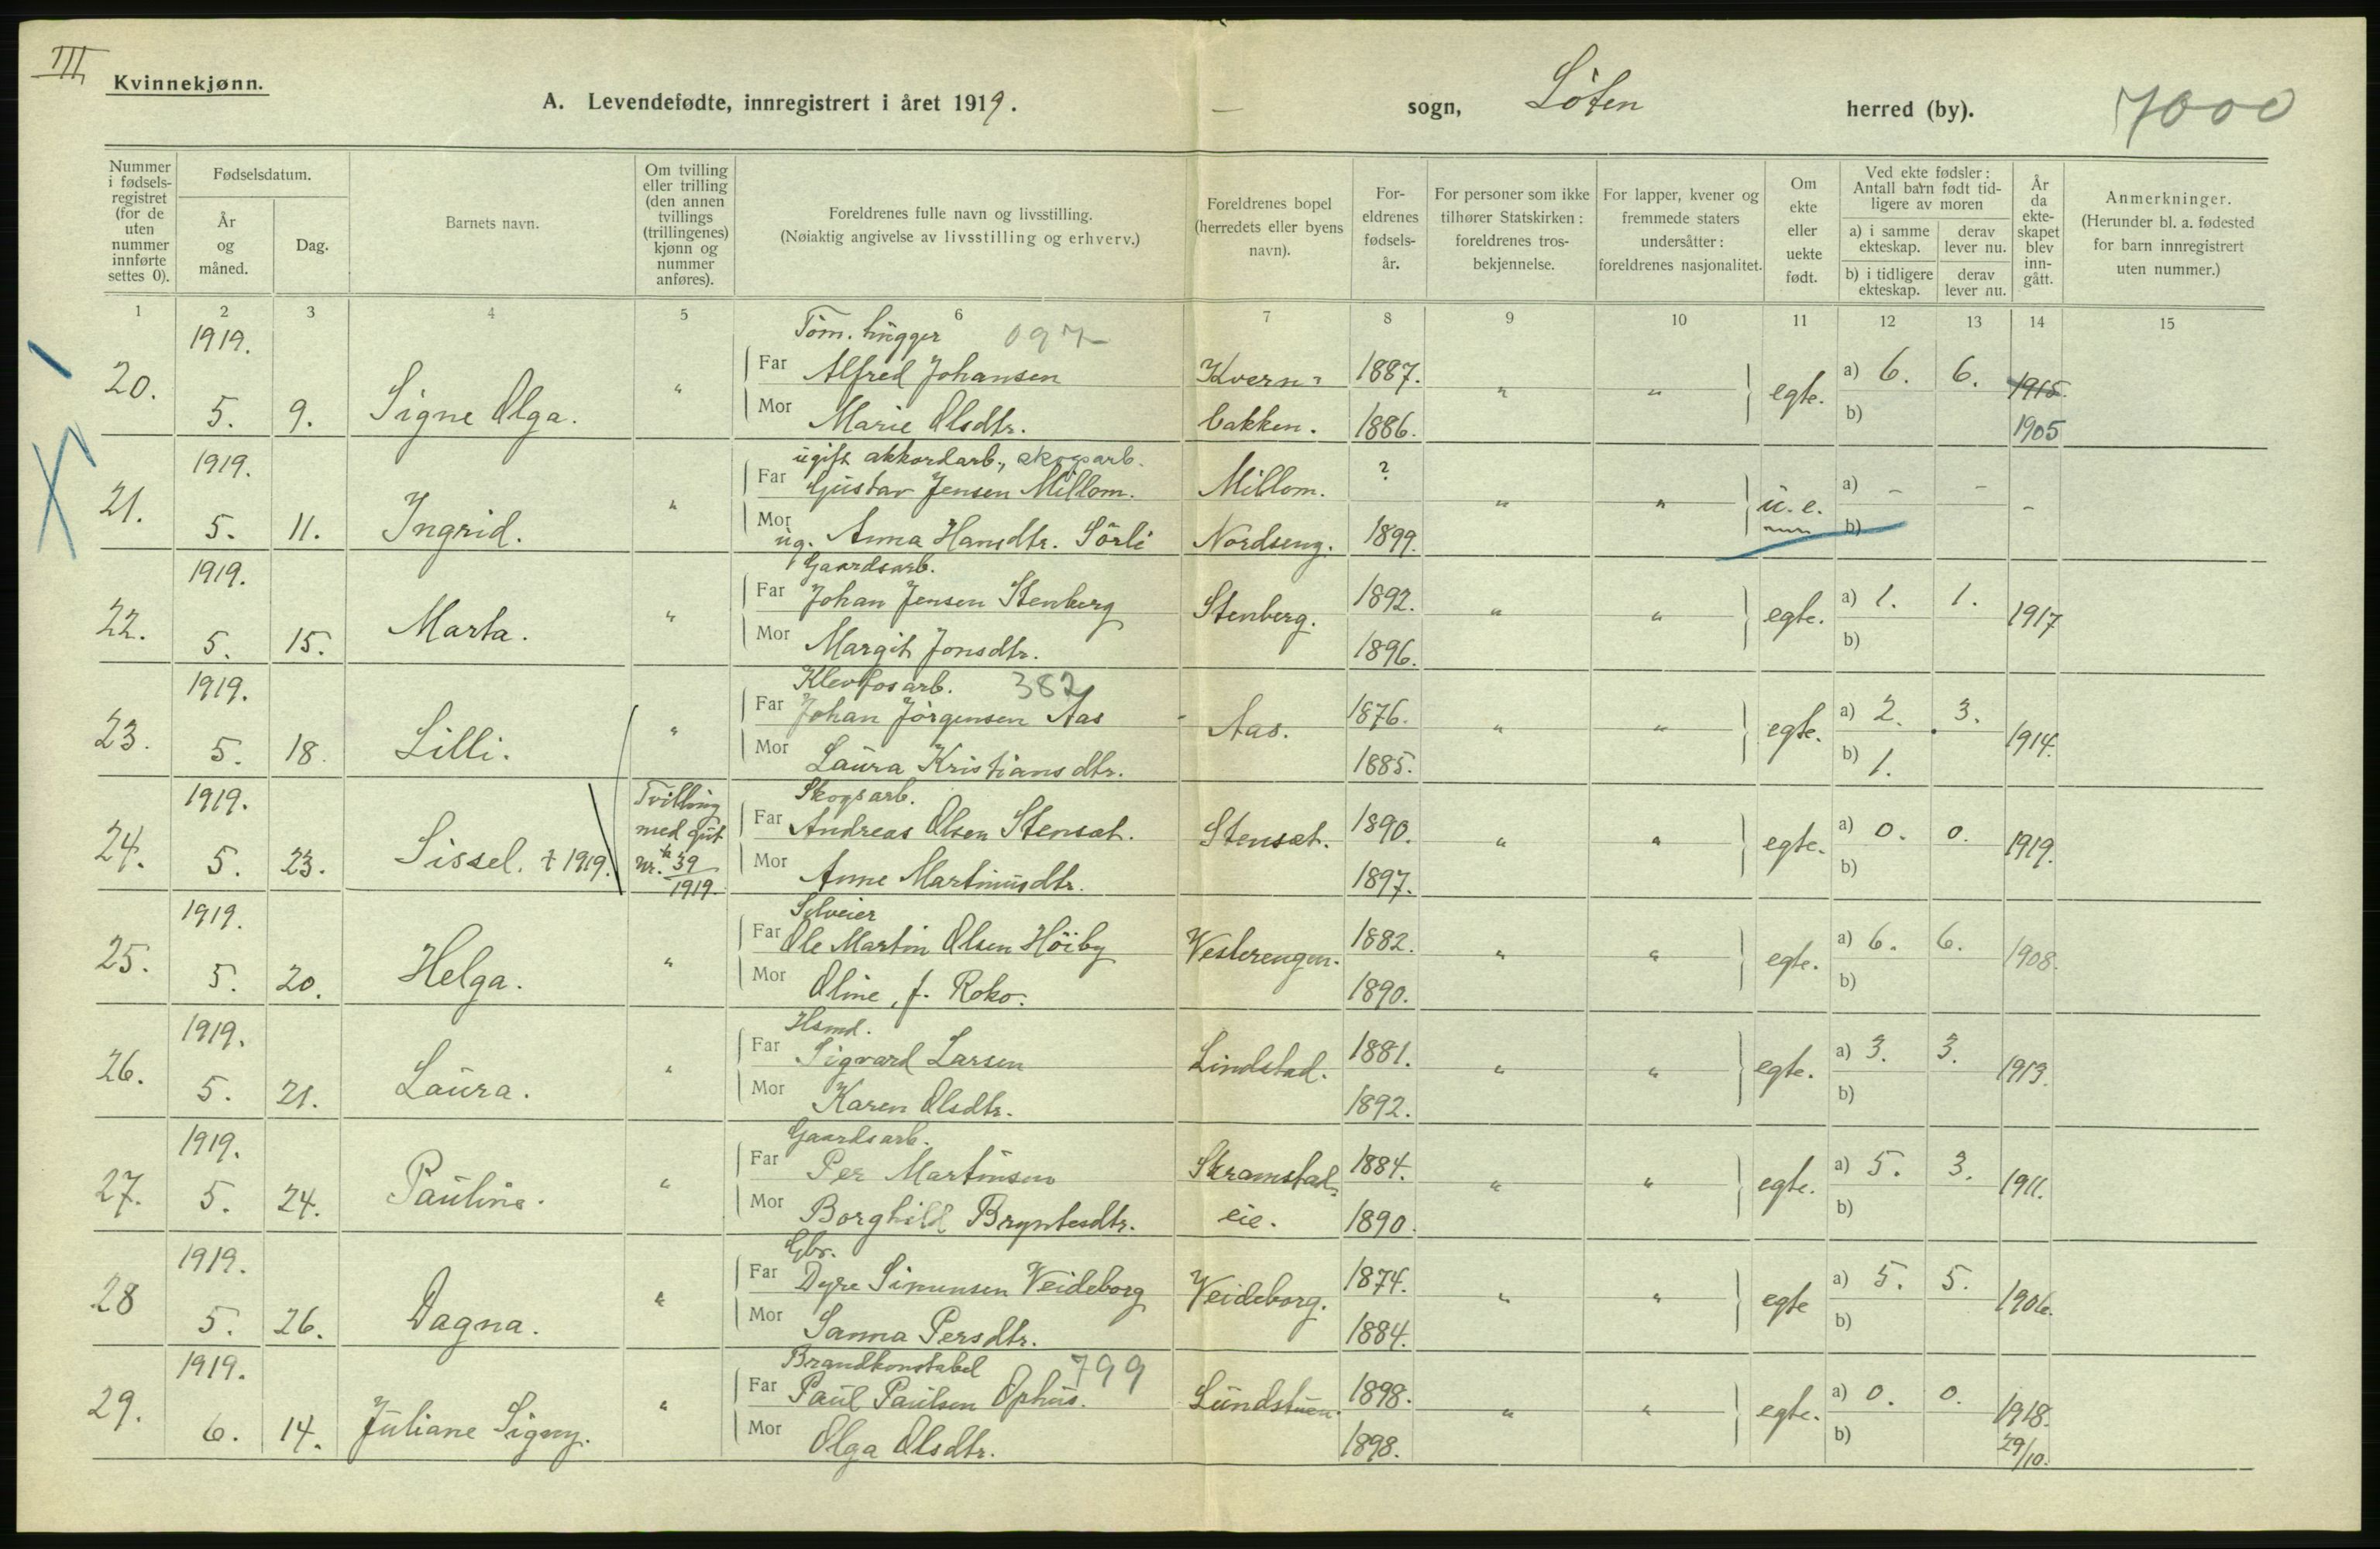 III
Kvinnekjønn.
A. Levendefødte, innregistrert i året 1919.
— sogn, Löten herred (by). 7000
Nummer i fødsels-registret (for de uten nummer innførte settes 0).
Fødselsdatum.
År og måned.
Dag.
Barnets navn.
Om tvilling eller trilling (den annen tvillings (trillingenes) kjønn og nummer anføres).
Foreldrenes fulle navn og livsstilling.
(Nøiaktig angivelse av livsstilling og erhverv.)
Foreldrenes bopel (herredets eller byens navn).
For-eldrenes fødsels-år.
For personer som ikke tilhører Statskirken: foreldrenes tros-bekjennelse.
For lapper, kvener og fremmede staters undersåtter: foreldrenes nasjonalitet.
Om ekte eller uekte født.
Ved ekte fødsler: Antall barn født tid-ligere av moren
a) i samme ekteskap.
derav lever nu.
b) i tidligere ekteskap.
derav lever nu.
År da ekte-skapet blev inn-gått.
Anmerkninger.
(Herunder bl. a. fødested for barn innregistrert uten nummer.)
1 2 3 4 5 6 7 8 9 10 11 12 13 14 15
1919. Töm.hugger 097
20. 5. 9. Signe Olga. " Far Alfred Johansen Kvern- 1887. " " egte. a) 6. 6. 1915.
Mor Marie Olsdtr. bakken. 1886. b) 1905
1919. ugift akkordarb., skogsarb.
21. 5. 11. Ingrid. " Far Gustav Jensen Millom. Millom. ? " " u.e. a) - - -
Mor ug. Anna Hansdtr. Sörli Nordseng. 1899. b)
1919. Gaardsarb.
22. 5. 15. Marta. " Far Johan Jensen Stenberg Stenberg. 1892. " " egte. a) 1. 1. 1917
Mor Margit Jonsdtr. 1896. b)
1919. Klevfosarb. 382
23. 5. 18. Lilli. " Far Johan Jörgensen Aas Aas. 1876. " " egte. a) 2. 3. 1914.
Mor Laura Kristiansdtr. 1885. b) 1.
1919. Tvilling med gut Skogsarb.
24. 5. 23. Sissel. † 1919. nr. 39/1919. Far Andreas Olsen Stensæt. Stensæt. 1890. " " egte. a) 0. 0. 1919.
Mor Anne Martinusdtr. 1897. b)
1919. Selveier
25. 5. 20. Helga. " Far Ole Martin Olsen Höiby Vesterengen. 1882. " " egte. a) 6. 6. 1908.
Mor Oline, f. Roko. 1890. b)
1919. Hsmd.
26. 5. 21. Laura. " Far Sigvard Larsen Lindstad. 1881. " " egte. a) 3. 3. 1913.
Mor Karen Olsdtr. 1892. b)
1919. Gaardsarb.
27. 5. 24. Pauline. " Far Per Martinsen Skramstad- 1884. " " egte. a) 5. 3. 1911.
Mor Borghild Bryntesdtr. eie. 1890. b)
1919. Gbr.
28 5. 26. Dagna. " Far Dyre Simensen Veideborg Veideborg. 1874. " " egte a) 5. 5. 1906.
Mor Sanna Persdtr. 1884. b)
1919. Brandkonstabel 799
29. 6. 14. Juliane Signy. " Far Paul Paulsen Ophus. Lundstuen. 1898. " " egte. a) 0. 0. 1918.
Mor Olga Olsdtr. 1898. b) 29/10.